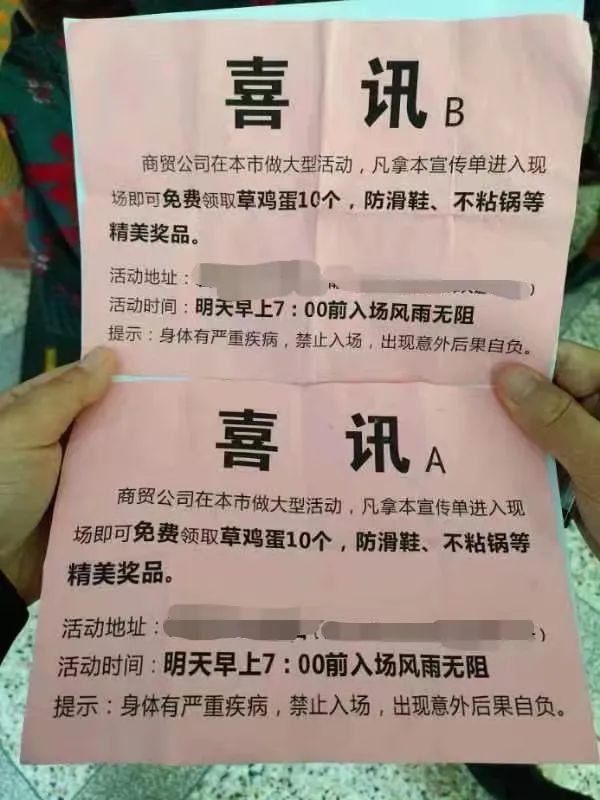 喜 讯 B
商贸公司在本市做大型活动，凡拿本宣传单进入现
场即可免费领取草鸡蛋10个，防滑鞋、不粘锅等
精美奖品。
活动地址：
活动时间：明天早上7：00前入场风雨无阻
提示：身体有严重疾病，禁止入场，出现意外后果自负。
喜 讯 A
商贸公司在本市做大型活动，凡拿本宣传单进入现
场即可免费领取草鸡蛋10个，防滑鞋、不粘锅等
精美奖品。
活动地址：
活动时间：明天早上7：00前入场风雨无阻
提示：身体有严重疾病，禁止入场，出现意外后果自负。